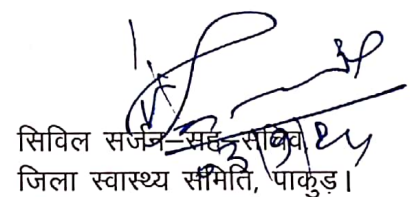 सिविल सर्जन–सह–सचिव,
जिला स्वास्थ्य समिति, पाकुड़।